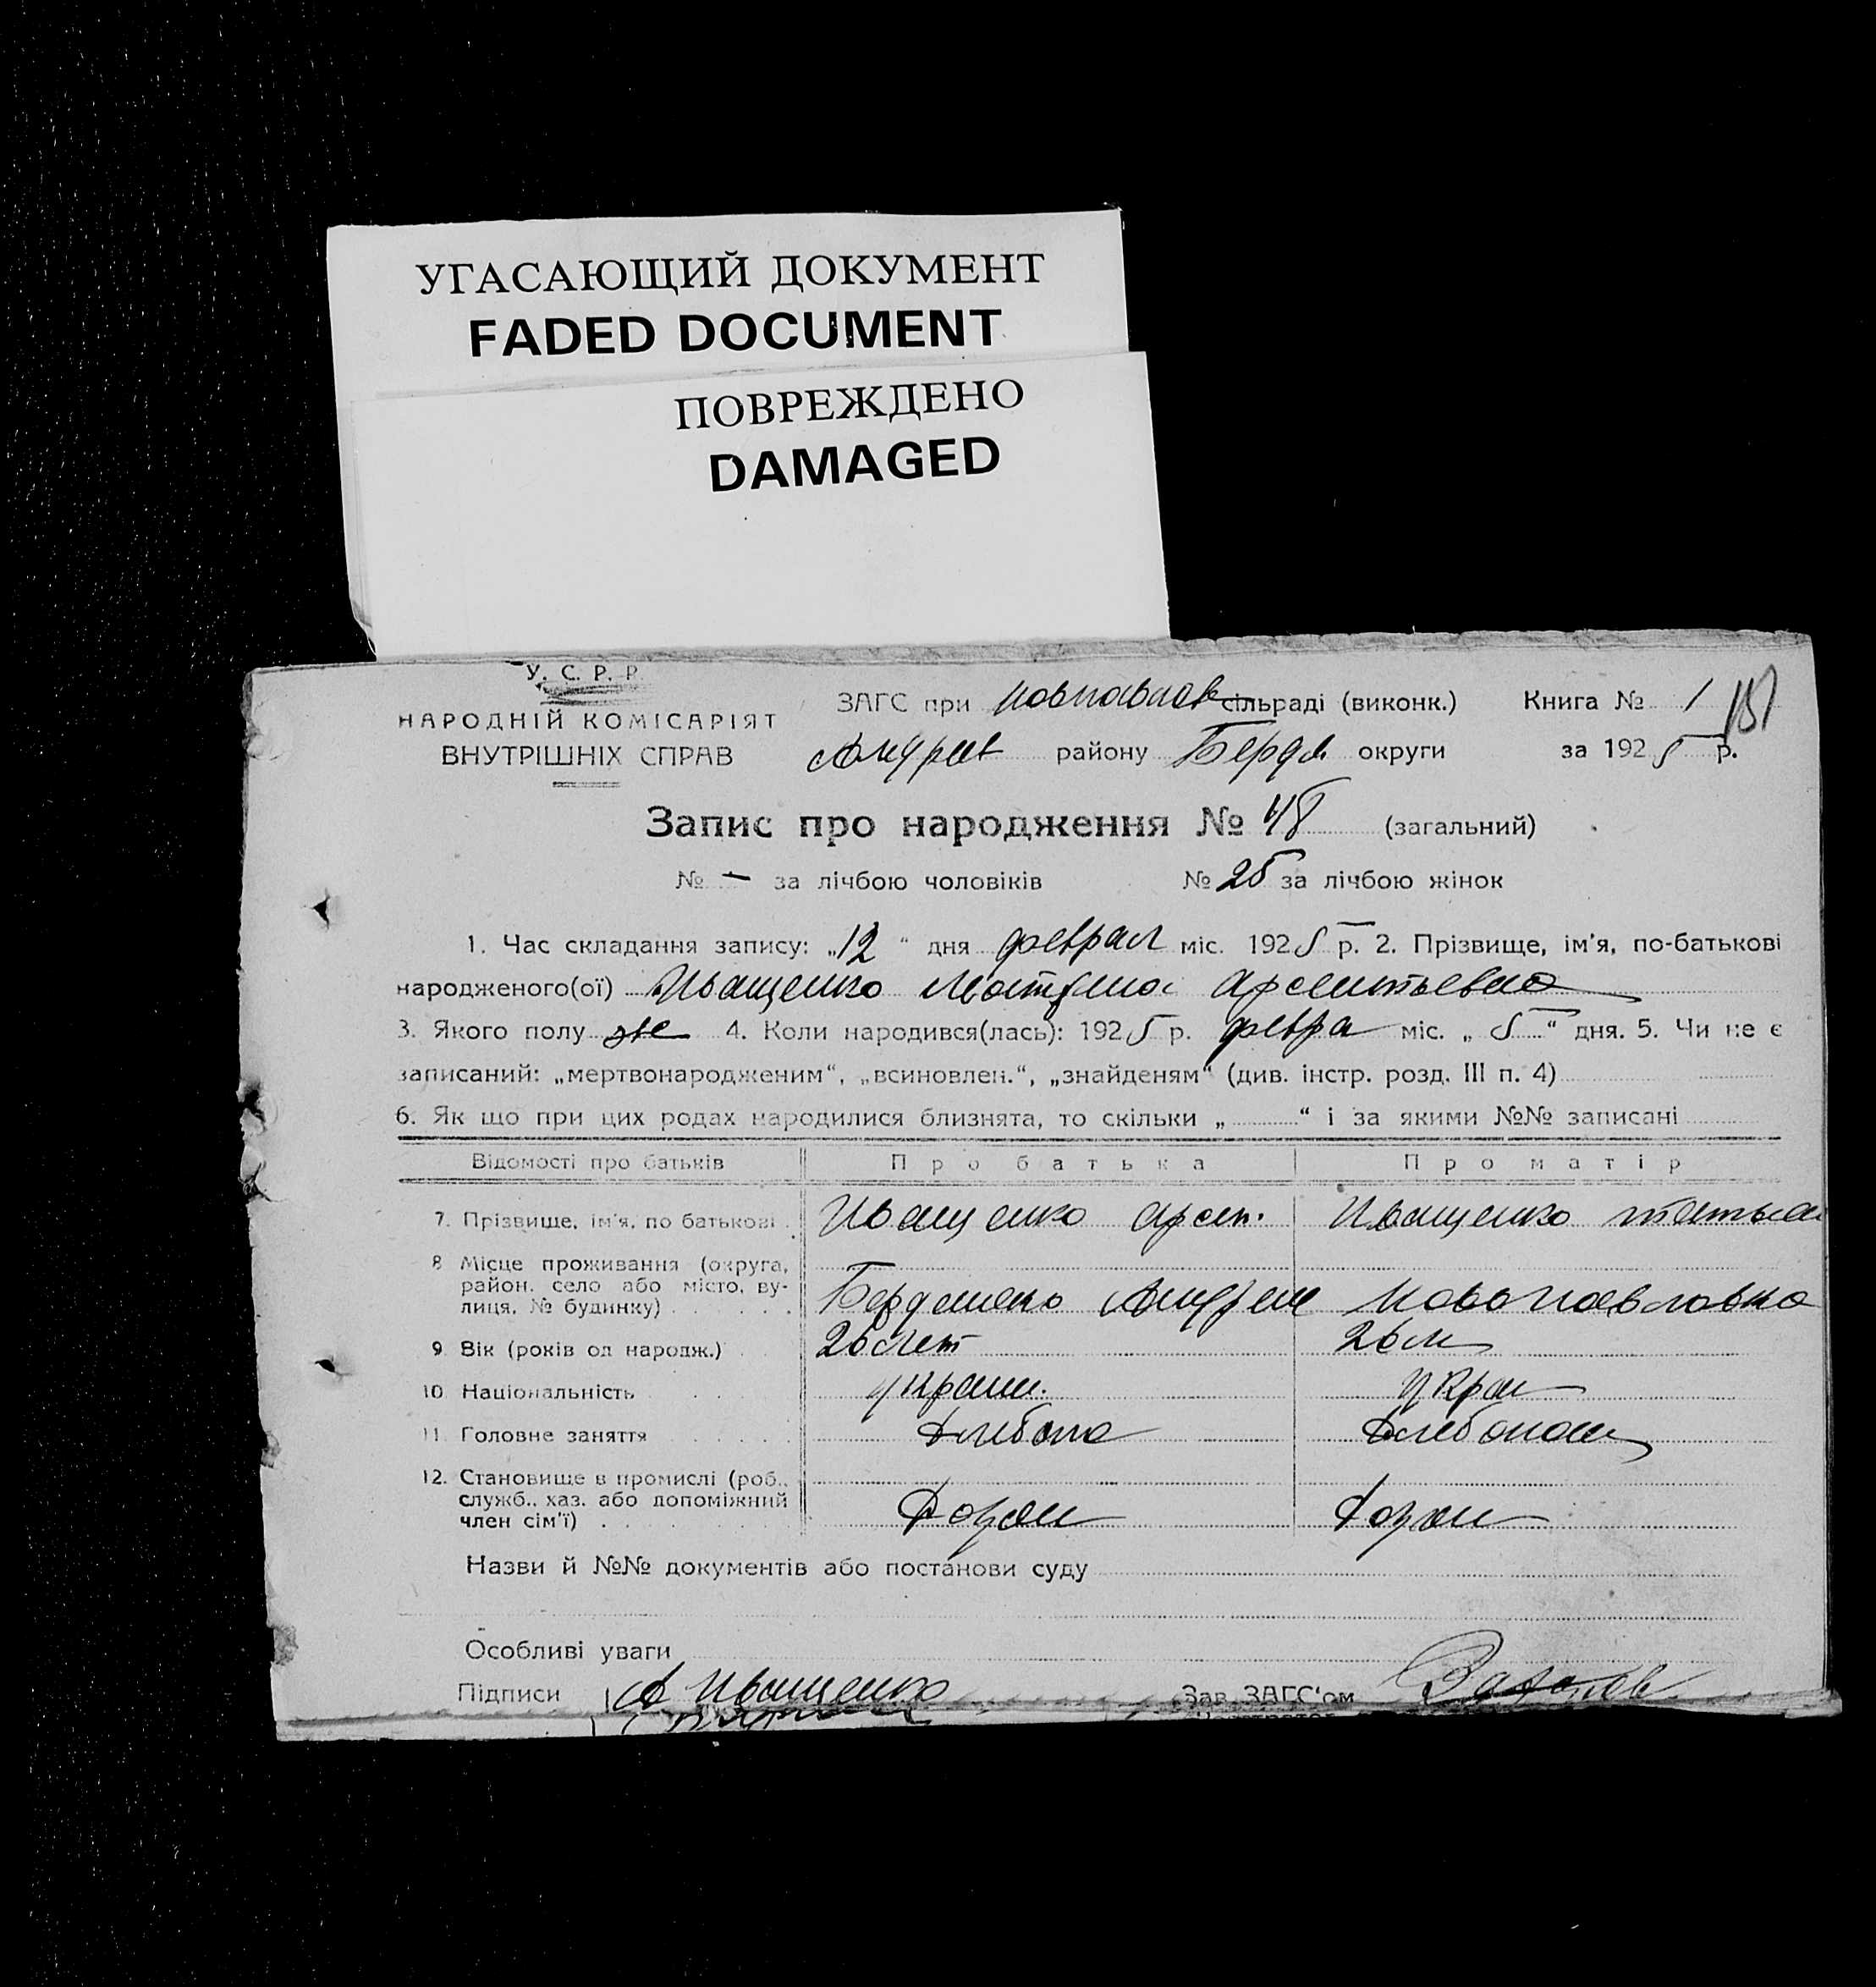 УГАСАЮЩИЙ ДОКУМЕНТ
FADED DOCUMENT
ПОВРЕЖДЕНО
DAMAGED
У. С. Р. Р.
НАРОДНІЙ КОМІСАРІЯТ
ВНУТРІШНІХ СПРАВ
ЗАГС при Новопавлов сільраді (виконк.) Книга № 1
Андреев району Бердя округи за 1925 р.
Запис про народження № 48 (загальний)
№ — за лічбою чоловіків № 25 за лічбою жінок
1. Час складання запису: „12“ дня феврал міс. 1925 р. 2. Прізвище, ім'я, по-батькові
народженого(ої) Иващенко Арсентьевна
3. Якого полу же 4. Коли народився(лась): 1925 р. февра міс. „5“ дня. 5. Чи не є
записаний: „мертвонародженим“, „всиновлен.“, „знайденям“ (див. інстр. розд. III п. 4)
6. Як що при цих родах народилися близнята, то скільки „ “ і за якими №№ записані
Відомості про батьків Про батька Про матір
7. Прізвище, ім'я, по батькові Иващенко Арсен. Иващенко Татьян
8 Місце проживання (округа, район, село або місто, вулиця, № будинку) Ново Павловка
9 Вік (років од народж.) 26 лет 26 л
10 Національність украин. Украи
11. Головне заняття
12. Становище в промислі (роб., служб., хаз. або допоміжний член сім'ї) Хозяи Хозяи
Назви й №№ документів або постанови суду
Особливі уваги
Підписи А Иващенко Зав. ЗАГС'ом